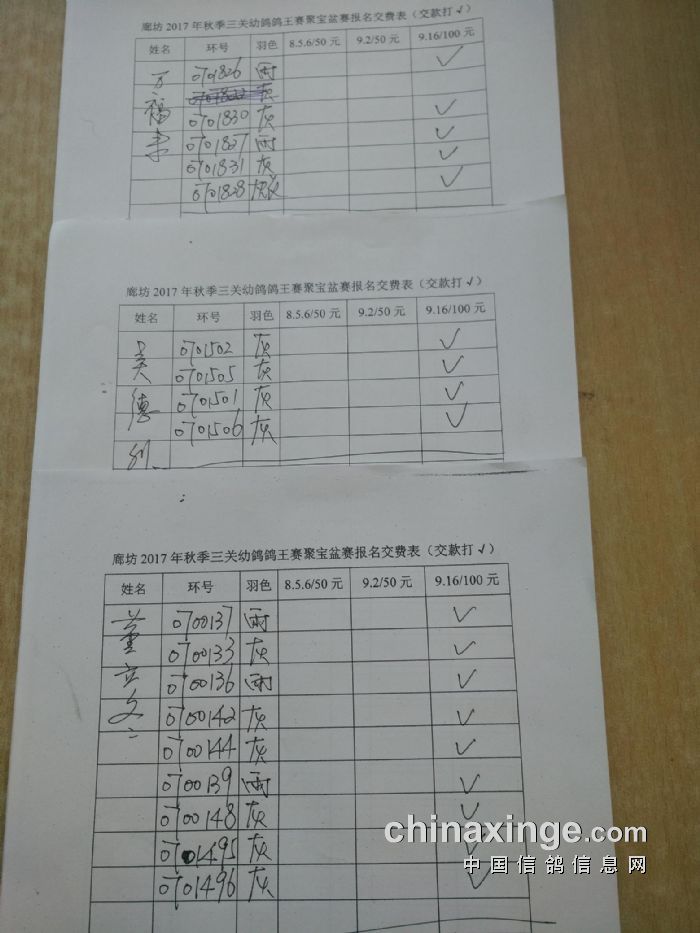 廊坊 2017 年秋季三关幼鸽鸽王赛聚宝盆赛报名交费表（交款打 √）
姓名 环号 羽色 8.5.6/50 元 9.2/50 元 9.16/100 元
万 0701826 雨 ✓
福 0701822 灰
0701830 灰 ✓
0701827 雨 ✓
0701831 灰 ✓
0701828 ✓
廊坊 2017 年秋季三关幼鸽鸽王赛聚宝盆赛报名交费表（交款打 √）
姓名 环号 羽色 8.5.6/50 元 9.2/50 元 9.16/100 元
吴 0701502 灰 ✓
0701505 灰 ✓
德 0701501 灰 ✓
0701506 灰 ✓
利
廊坊 2017 年秋季三关幼鸽鸽王赛聚宝盆赛报名交费表（交款打 √）
姓名 环号 羽色 8.5.6/50 元 9.2/50 元 9.16/100 元
董 0700137 雨 ✓
0700133 灰 ✓
立 0700136 雨 ✓
文 0700142 灰 ✓
二 0700144 灰 ✓
0700139 雨 ✓
0700148 灰 ✓
0701495 灰 ✓
0701496 灰 ✓
chinaxinge.com
中国信鸽信息网